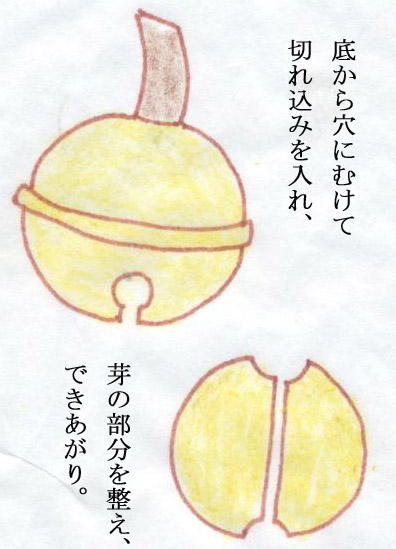 底から穴にむけて
切れ込みを入れ、
芽の部分を整え、
できあがり。